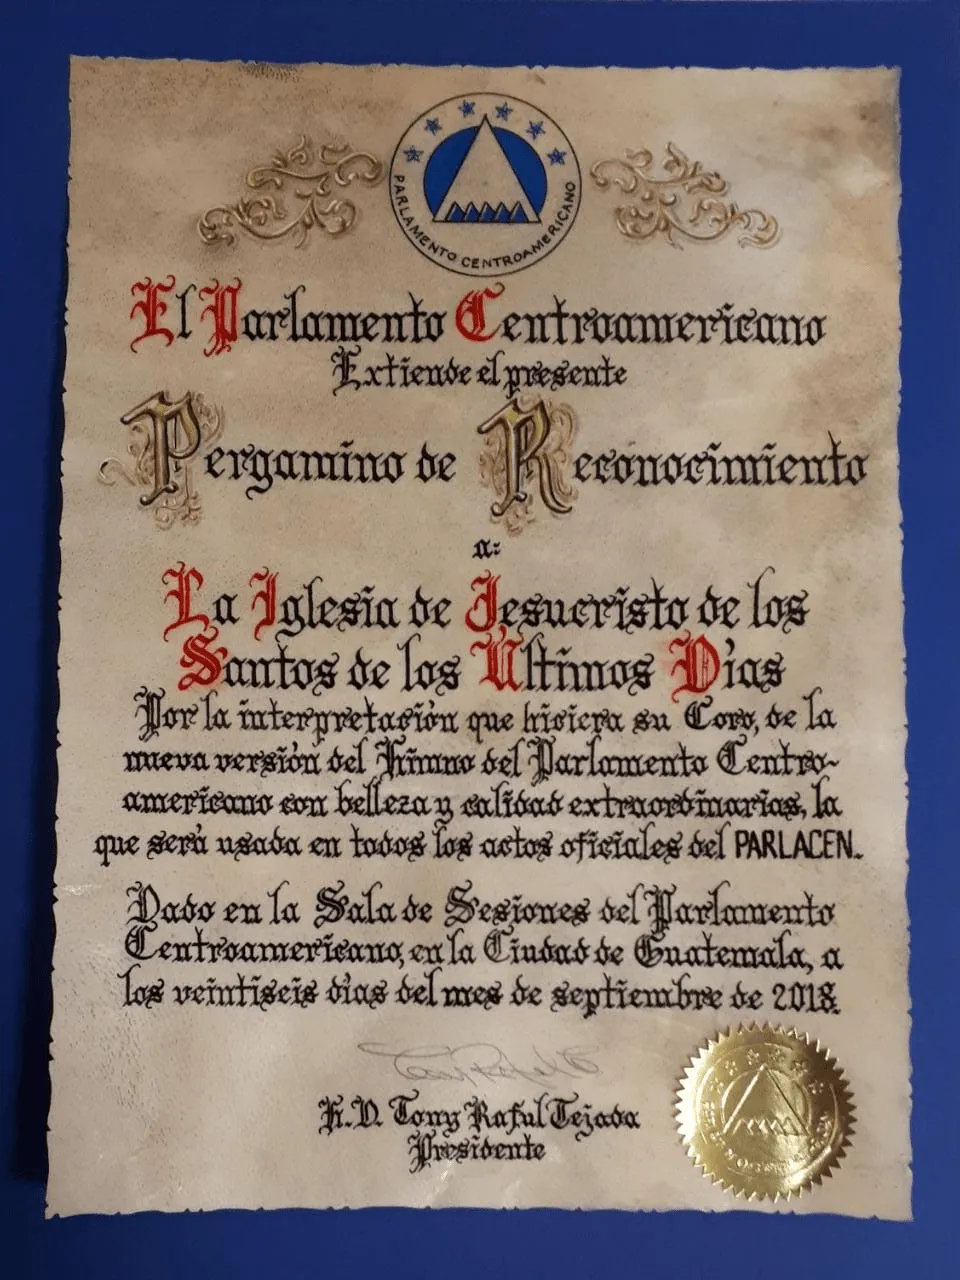 PARLAMENTO CENTROAMERICANO
El Parlamento Centroamericano
Extiende el presente
Pergamino de Reconocimiento
a:
La Iglesia de Jesucristo de los
Santos de los Últimos Días
Por la interpretación que hiciera su Coro, de la
nueva versión del Himno del Parlamento Centro-
americano con belleza y calidad extraordinarias, la
que será usada en todos los actos oficiales del PARLACEN.
Dado en la Sala de Sesiones del Parlamento
Centroamericano, en la Ciudad de Guatemala, a
los veintiseis días del mes de septiembre de 2018.
H.D. Tony Raful Tejada
Presidente